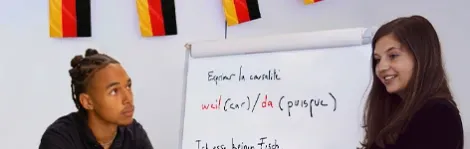 Exprimer la causalité
weil (car) / da (puisque)
Ich esse keinen Fisch